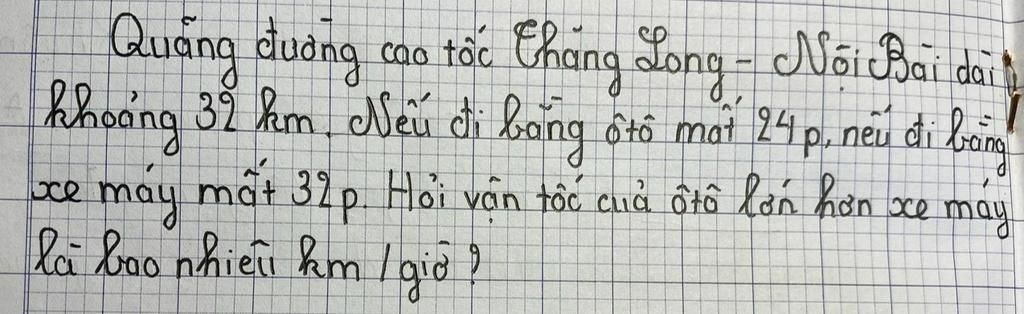 Quãng đường cao tốc Thăng Long - Nội Bài dài
khoảng 32 km. Nếu đi bằng ôtô mất 24p, nếu đi bằng
xe máy mất 32p. Hỏi vận tốc của ôtô lớn hơn xe máy
là bao nhiêu km/giờ?